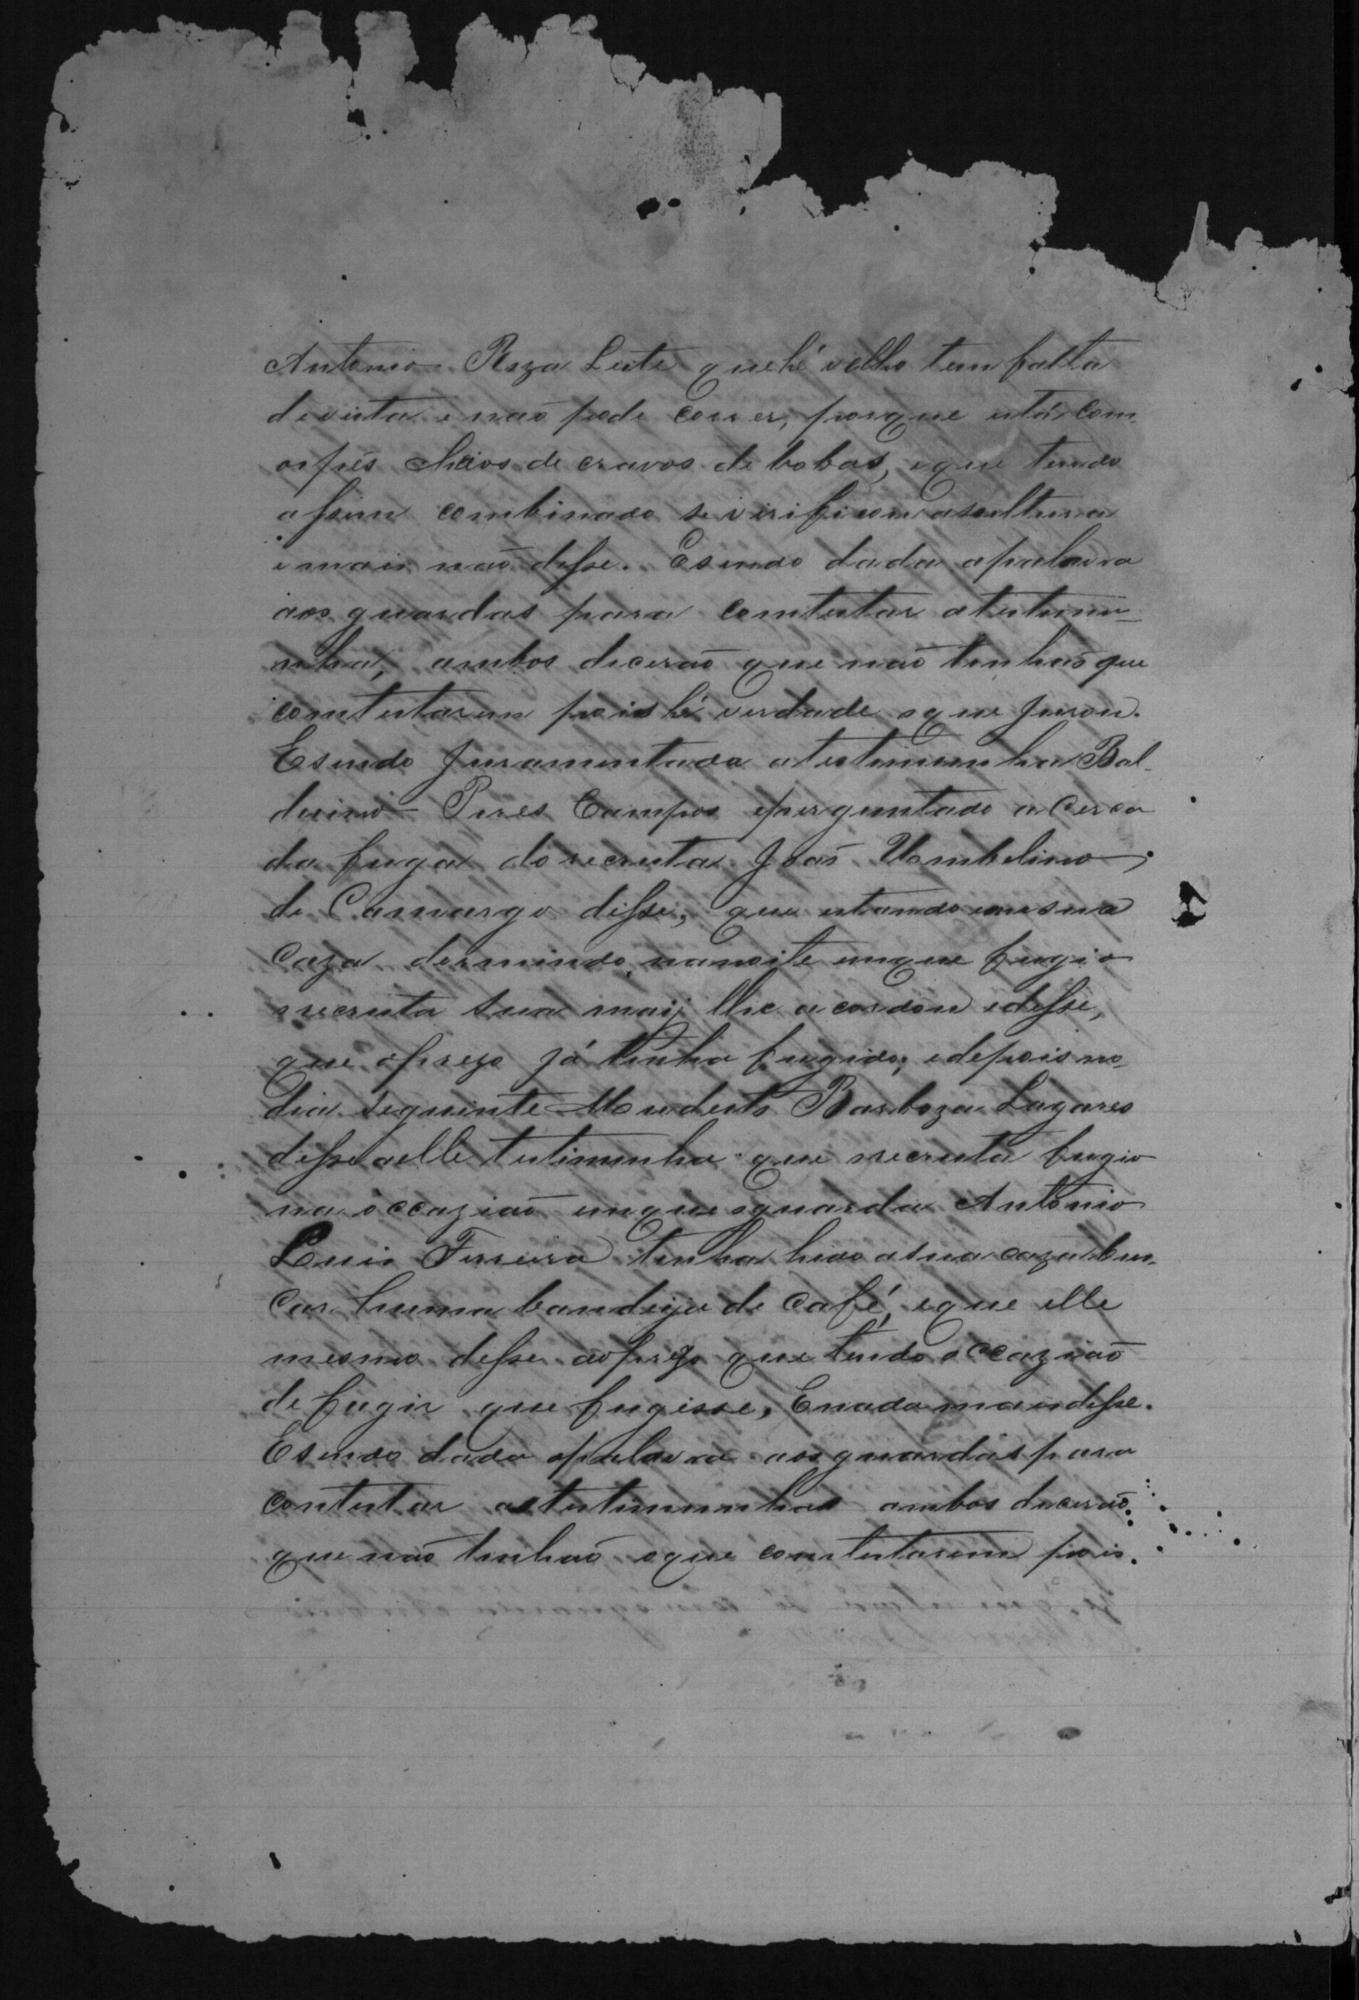 Antonio Roza Leite que hé velho tem falta
de vista e não pode correr, porque está com
os pés cheios de cravos de bobas, e que tendo
assim combinado se virificou a soltura
e mais não disse. E sendo dada a palavra
aos guardas para contestar a testimu-
nha, ambos dicerão que não tinhão que
contestarem pois hé verdade o que jurou.
E sendo juramentada a testimunha Bal-
duino Pires Campos e perguntado a cerca
da fuga do recruta João Umbelino
de Camargo disse, que estando em sua
caza dormindo, na noite em que fugio
o recruta sua maij lhe acordou e disse,
que o prezo já tinha fugido; e depois no
dia seguinte Modesto Barboza Lagares
disse a elle testimunha que o recruta fugio
na occazião em que o guarda Antonio
Luis Ferreira tinha hido a sua caza bus-
car huma bandeja de café, e que elle
mesmo disse ao prezo que tendo occazião
de fugir que fugisse, E nada mais disse.
E sendo dada a palavra aos guardas para
contestar as testimunhas ambos dicerão
que não tinhão o que contestarem pois